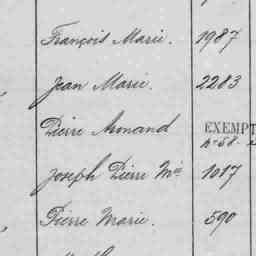 François Marie. 1987
Jean Marie. 2283
Pierre Armand EXEMPT
n° 58.
Joseph Pierre Mie 1087
Pierre Marie. 590